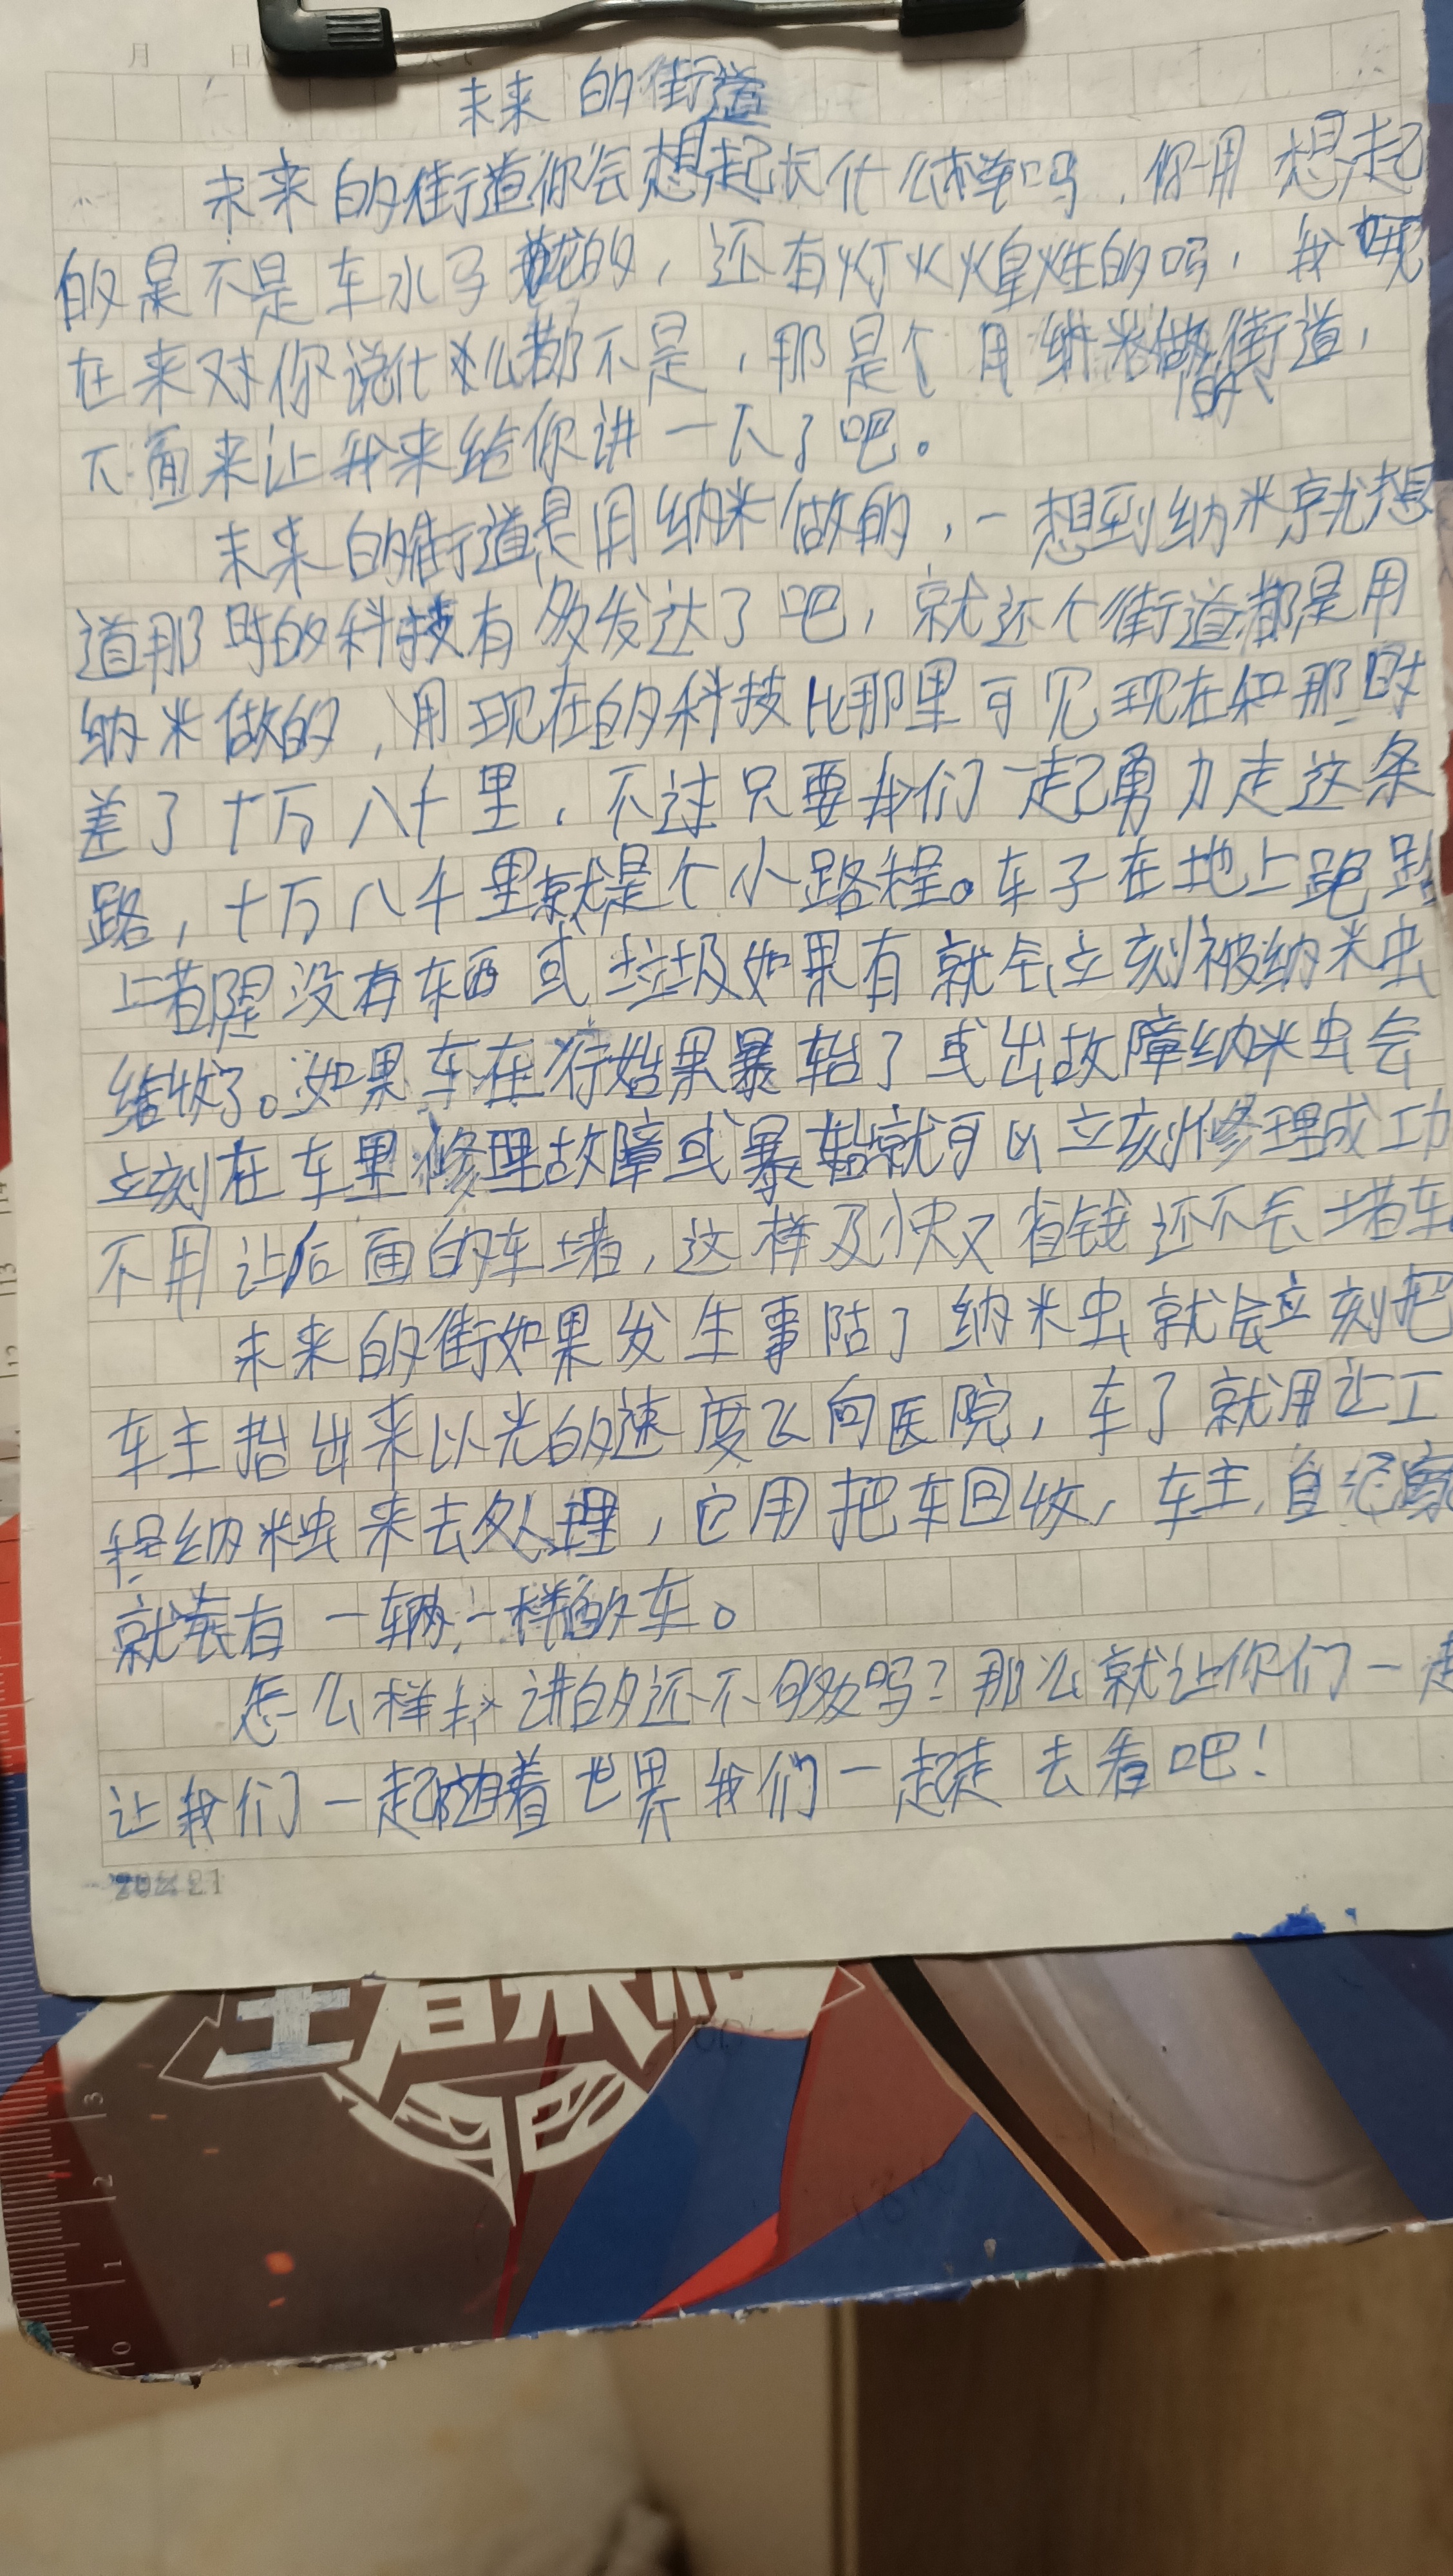 月 日
未来的街道
未来的街道你会想起长什么样吗，你用想起
的是不是车水马龙的，还有灯火火皇火生的吗，我现
在来对你说什么都不是，那是个用纳米做的街道，
下面来让我来给你讲一下了吧。
未来的街道是用纳米做的，一想到纳米就想
道那时的科技有多发达了吧，就还个街道都是用
纳米做的，用现在的科技比那里可见现在和那时
差了十万八千里，不过只要我们一起勇力走这条
路，十万八千里就是个小路程。车子在地上跑路
上都没有东西或垃圾如果有就会立刻被纳米虫
收了。如果车在行暴胎了或出故障纳米虫会
立刻在车里修理故障或暴胎就可以立刻修理成功
不用让后面的车堵，这样及快又省钱还不会堵车
未来的街如果发生事故了纳米虫就会立刻把
车主抬出来以光的速度飞向医院，车了就用让工
程纳米虫来去处理，它用把车回收，车主，自己家
就有一辆一样的车。
怎么样我讲的还不够吗？那么就让你们一起
让我们一起随着世界我们一起走去看吧！
王者荣耀
3
2
1
0